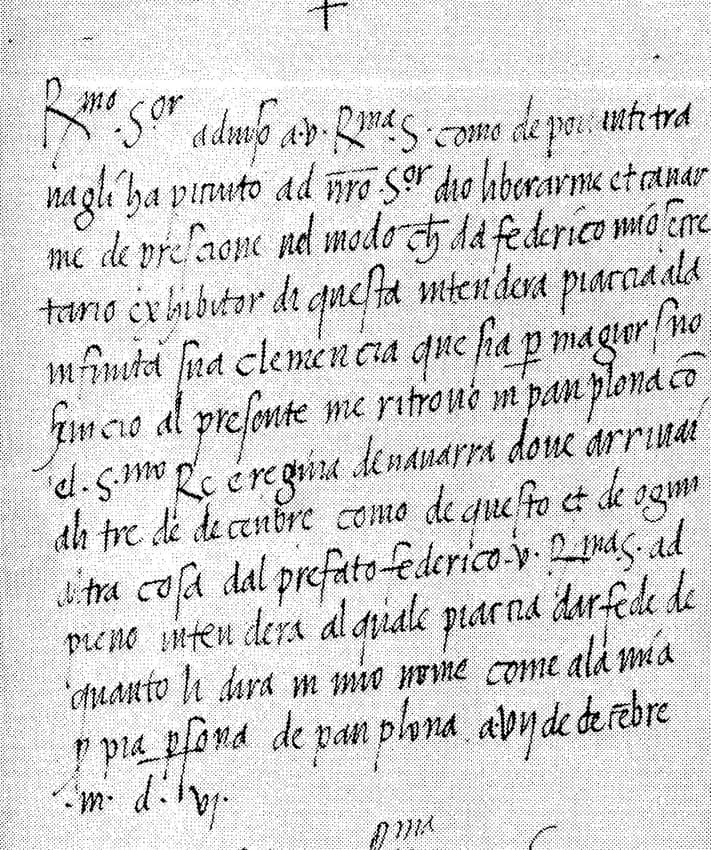 Rmo. Sor aduiso a.v. Rma. S. como de poi inti tra
uagli ha piaciuto ad nro. Sor dio liberarme et cauar
me de presione nel modo ch da federico mio secre
tario exhibitor di questa intendera piaccia ala
infinita sua clemencia que sia p magior suo
seruicio al presente me ritrouo in panplona cō
el. S.mo Re e regina de nauarra doue arriuai
ali tre de decenbre como de questo et de ogni
altra cosa dal prefato federico. v. Rma. S. ad
pieno intendera al quale piaccia dar fede de
quanto li dira in mio nome come ala mia
ppia psona de panplona. a vij de decēbre
.m. d. vj.